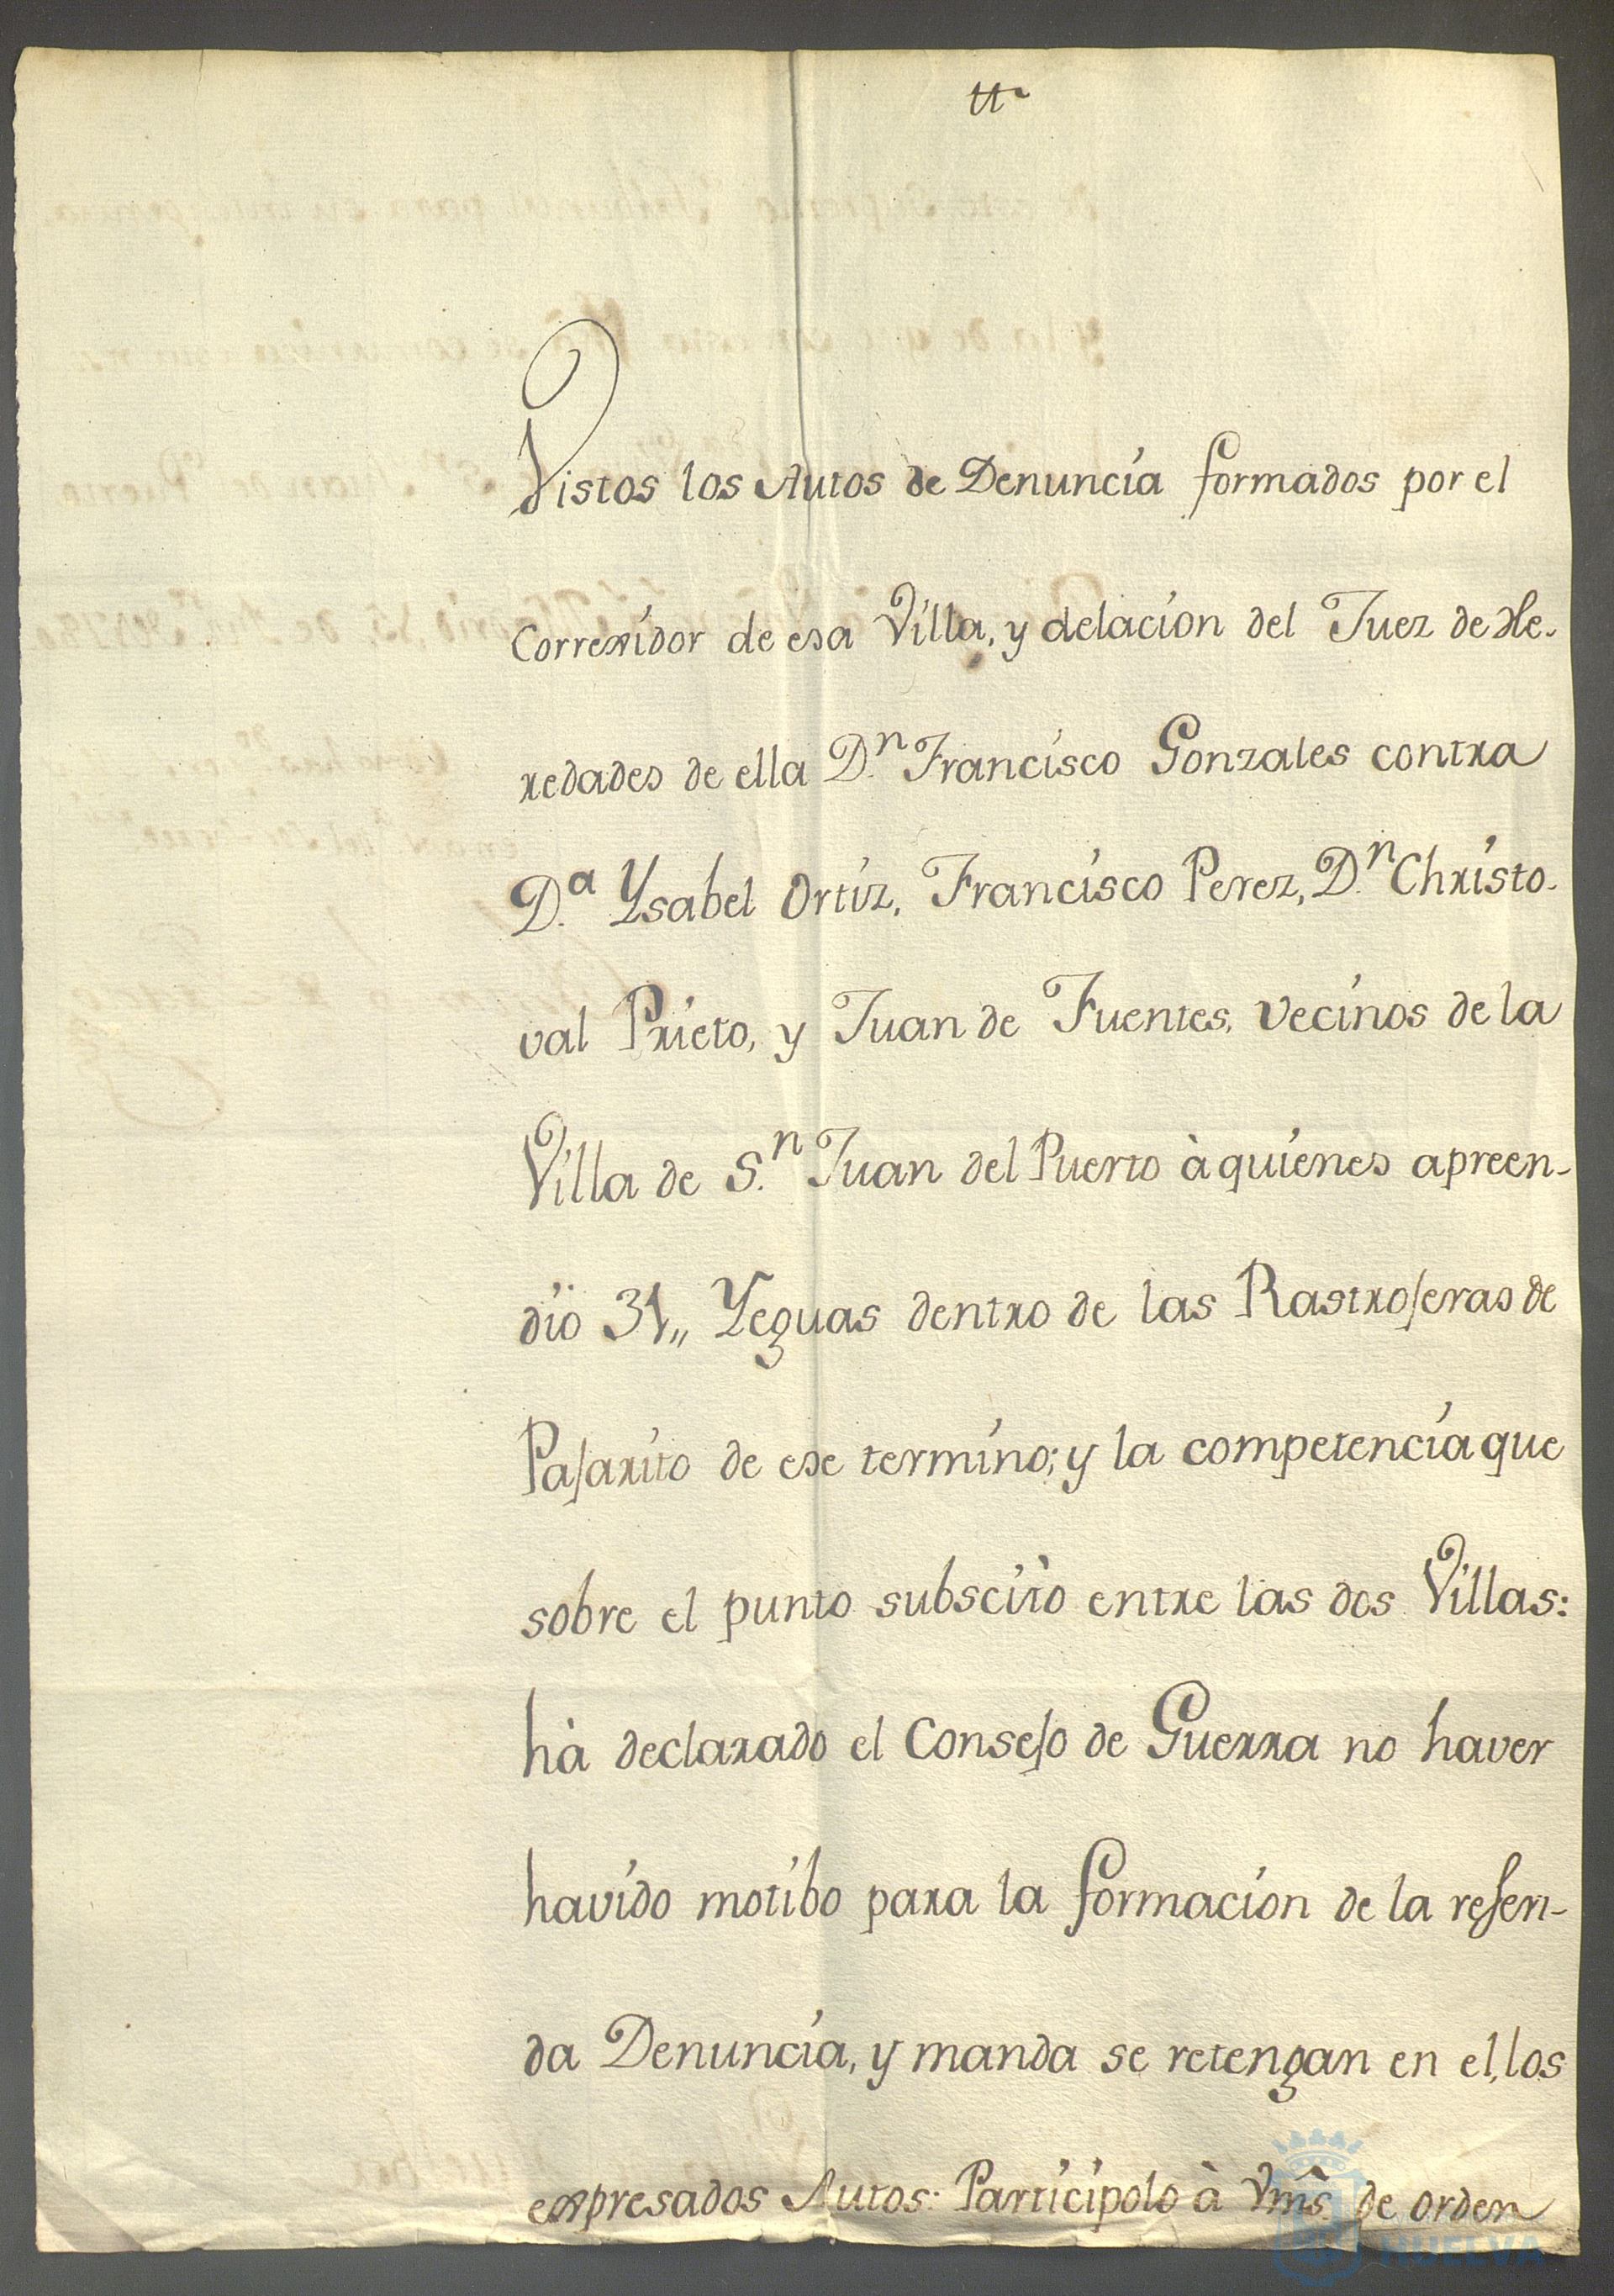 tt.
Vistos los Autos de Denuncia formados por el
Correxidor de esa Villa, y delacion del Juez de He-
redades de ella D.n Francisco Gonzales contra
D.a Ysabel Ortiz, Francisco Perez, D.n Christo-
val Prieto, y Juan de Fuentes, vecinos de la
Villa de S.n Juan del Puerto à quienes apreen-
dio 31,, Yeguas dentro de las Rastrojeras de
Pajarito de ese termino; y la competencia que
sobre el punto subscitò entre las dos Villas:
hà declarado el Consejo de Guerra no haver
havido motibo para la formacion de la referi-
da Denuncia, y manda se retengan en el, los
expresados Autos: Participolo à Vms. de orden
HUELVA